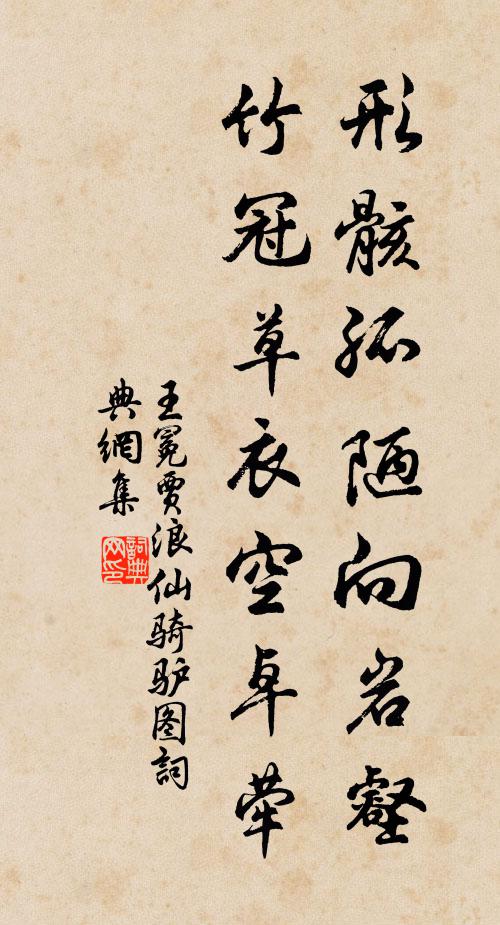 形骸孤陋向岩壑
竹冠草衣空卓犖
王冕贾浪仙骑驴图詞
典網集
詞典
网印